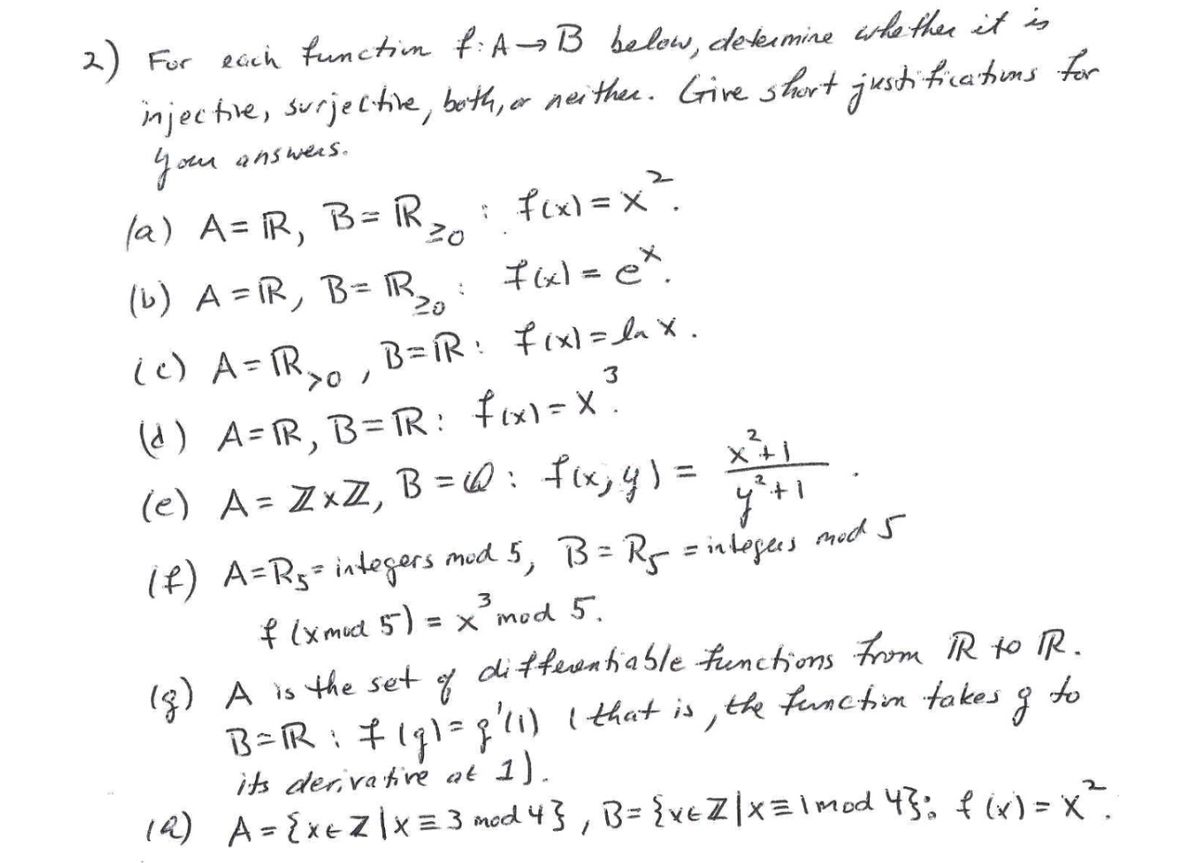 2) For each function f: A→B below, determine whether it is
injective, surjective, both, or neither. Give short justifications for
your answers.
(a) A = ℝ, B = ℝ≥0 : f(x) = x².
(b) A = ℝ, B = ℝ≥0 : f(x) = eˣ.
(c) A = ℝ>0 , B = ℝ : f(x) = ln x .
(d) A = ℝ, B = ℝ : f(x) = x³.
(e) A = ℤ×ℤ, B = ℚ : f(x, y) = (x²+1)/(y²+1) .
(f) A = R₅ = integers mod 5, B = R₅ = integers mod 5
f (x mod 5) = x³ mod 5.
(g) A is the set of differentiable functions from ℝ to ℝ.
B = ℝ : f(g) = g'(1) (that is, the function takes g to
its derivative at 1).
(h) A = {x ∈ ℤ | x ≡ 3 mod 4}, B = {x ∈ ℤ | x ≡ 1 mod 4}; f(x) = x².